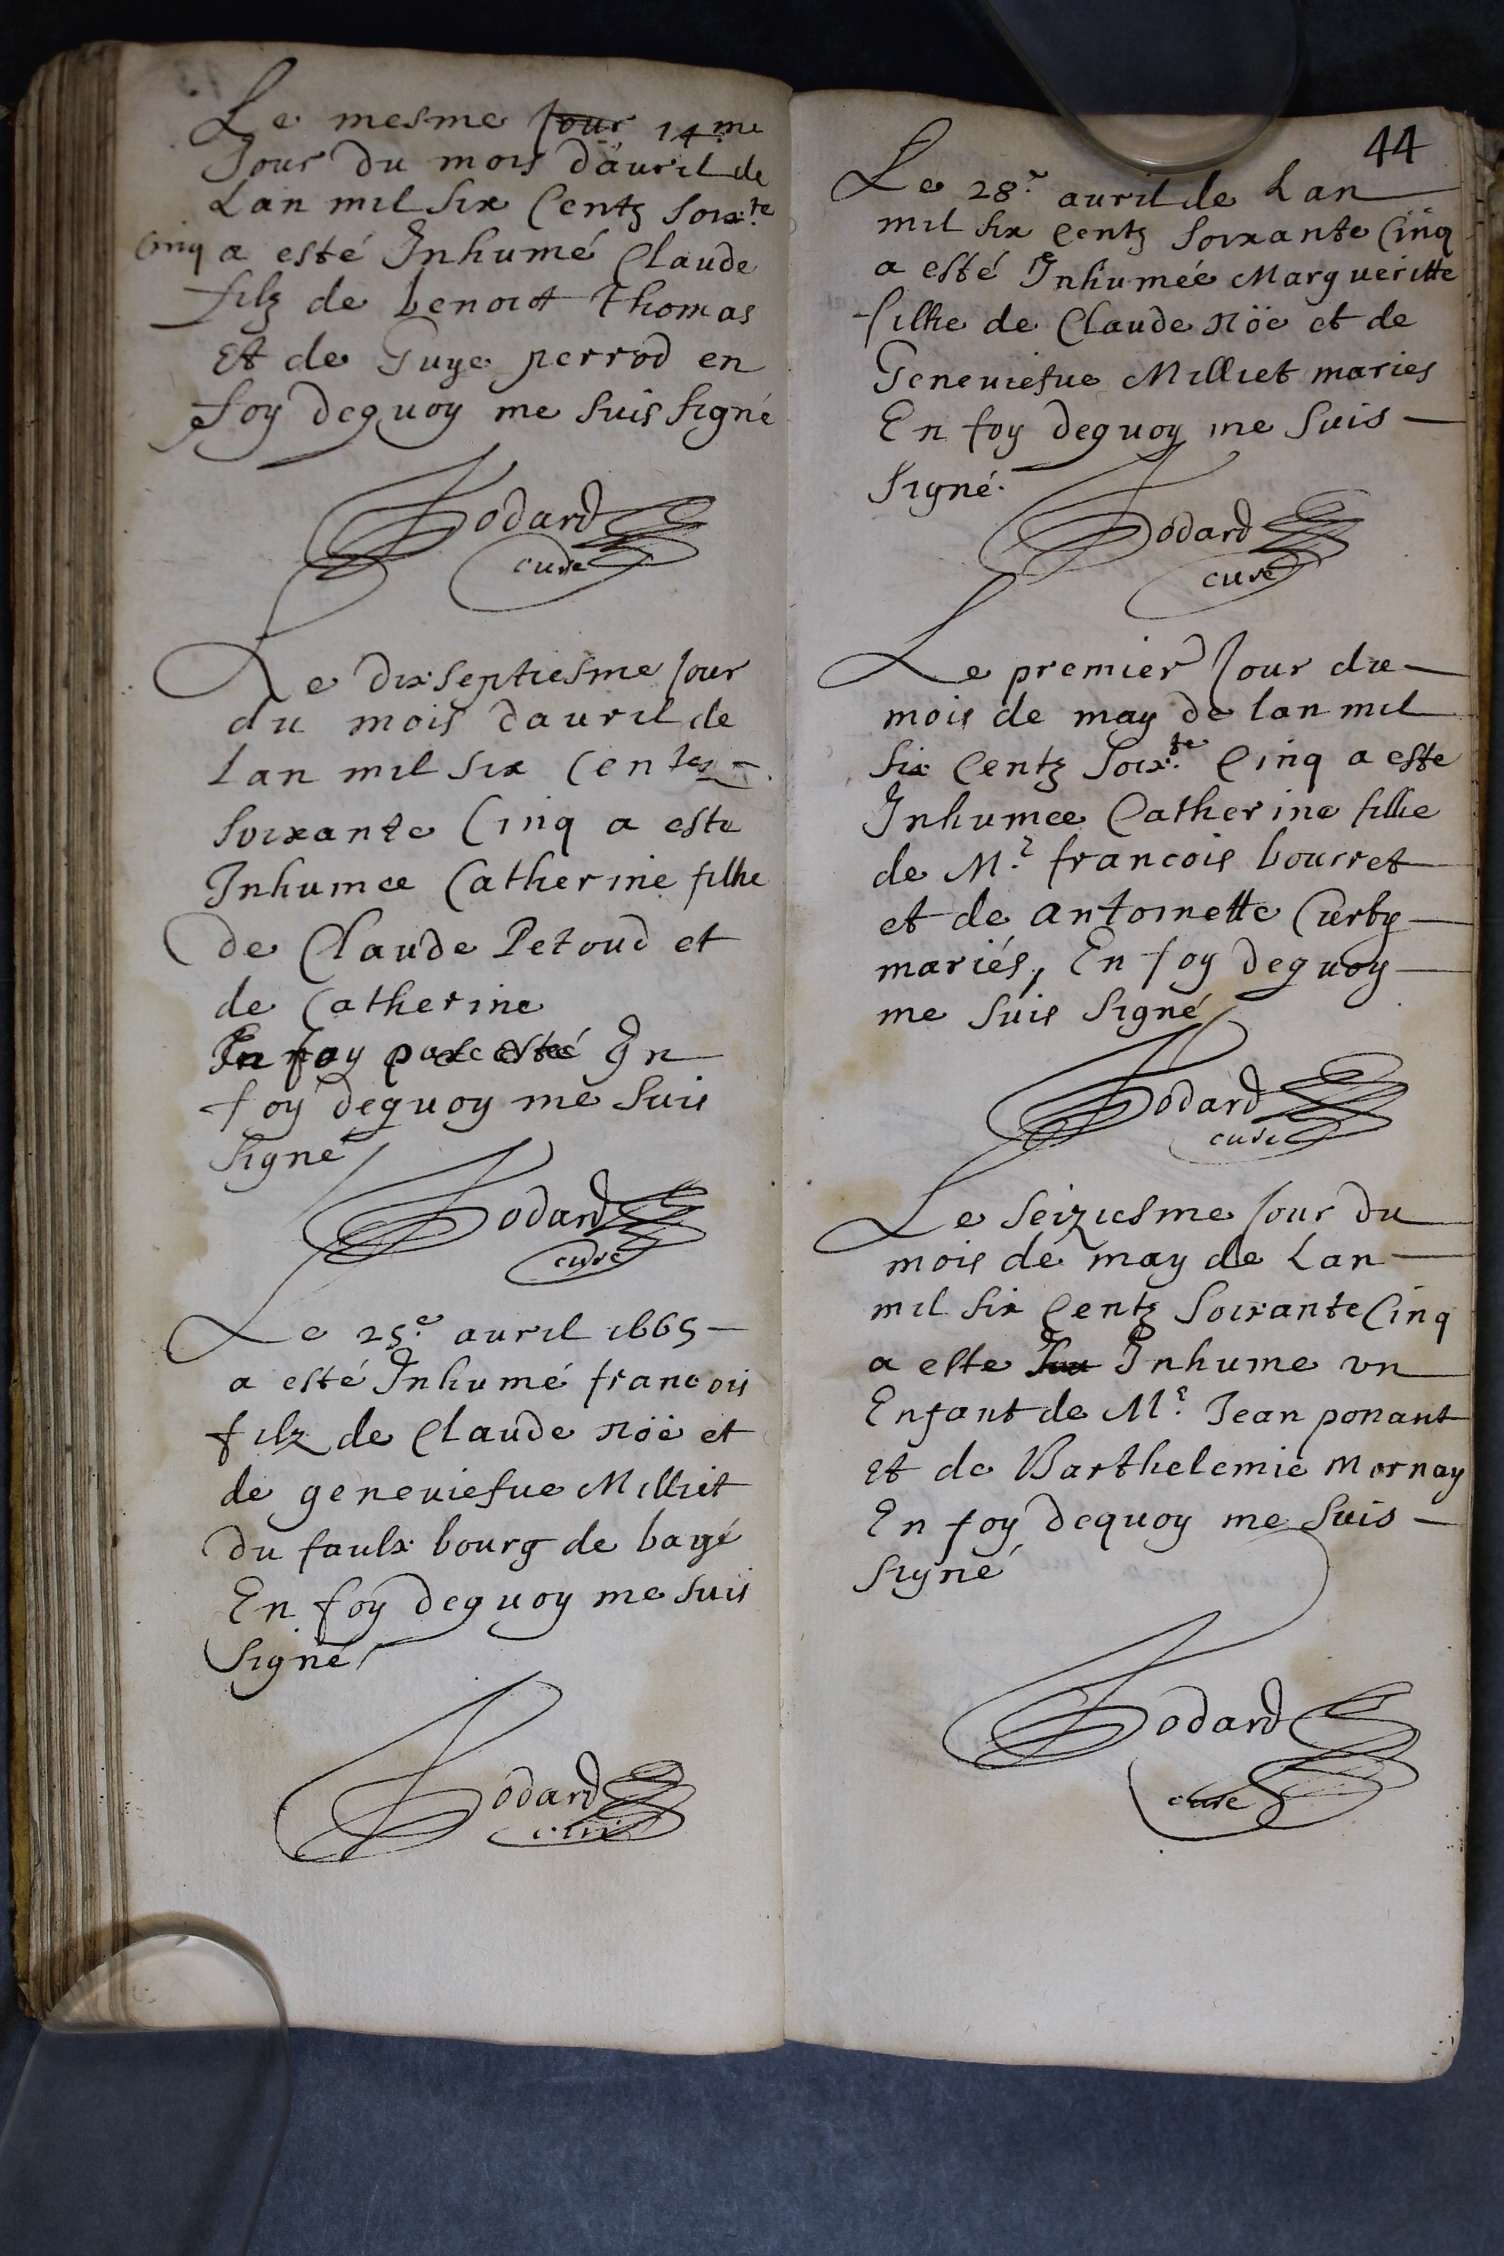 Le mesme Jour 14.me
Jour du mois dauril de
Lan mil six Centz soix.te
Cinq a esté Inhumé Claude
filz de benoict thomas
Et de Guye perrod en
foy dequoy me suis signé
Godard
curé
Le dixseptiesme Jour
du mois dauril de
Lan mil six Centz
soixante Cinq a este
Inhumee Catherine filhe
de Claude Petoud et
de Catherine
En foy esté En
foy dequoy me suis
signé
Godard
curé
Le 25.e auril 1665
a esté Inhumé francois
filz de Claude nöe et
de geneuiefue Milliet
du faulx bourg de bagé
En foy dequoy me suis
signé
Godard
curé
44
Le 28.e auril de Lan
mil six Centz soixante Cinq
a esté Inhumée Margueritte
filhe de Claude nöe et de
Geneuiefue Milliet maries
En foy dequoy me suis
signé.
Godard
curé
Le premier Jour du
mois de may de lan mil
six Centz soix.te Cinq a este
Inhumee Catherine filhe
de M.r francois bourret
et de antoinette Curby
mariés, En foy dequoy
me suis signé
Godard
curé
Le seiziesme Jour du
mois de may de Lan
mil six Centz soixante Cinq
a este Inhume vn
Enfant de M.r Jean ponant
et de Barthelemie Mornay
En foy dequoy me suis
signé
Godard
curé